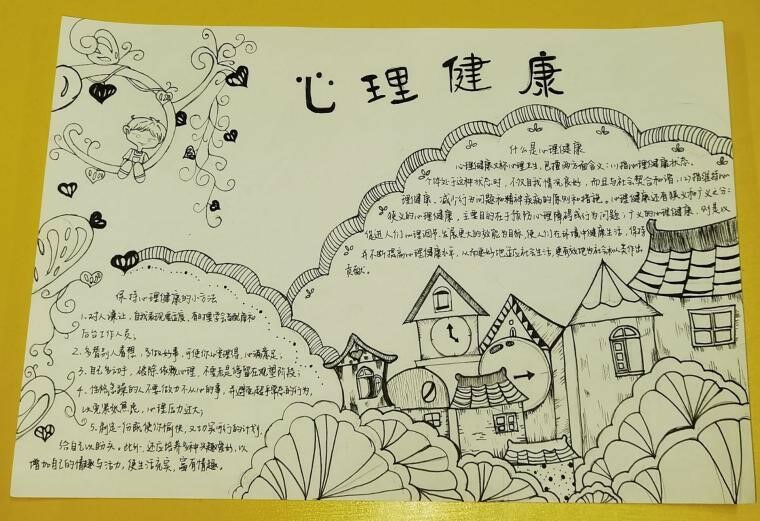 心理健康
什么是心理健康
心理健康又称心理卫生,包括两方面含义:(1)指心理健康状态。
个体处于这种状态时,不仅自我情况良好,而且与社会契合和谐,(2)指维持心
理健康、减少行为问题和精神疾病的原则和措施。心理健康还有狭义和广义之分:
狭义的心理健康,主要目的在于预防心理障碍或行为问题;广义的心理健康,则是以
促进人们心理调节、发展更大的效能为目标,使人们在环境中健康生活,保持
并不断提高心理健康水平,从而更好地适应社会生活,更有效地为社会和人类作出
贡献。
保持心理健康的小方法
1.对人谦让,自我表现要适度,有时要学会当配角和
后台工作人员;
2.多替别人着想,多做好事,可使你心安理得,心满意足;
3.自己多动手,破除依赖心理,不要老是停留在观望阶段;
4.性格急躁的人不要做力不从心的事,并避免超乎常态的行为,
以免紧张焦虑,心理压力过大;
5.制定一份既使你愉快,又切实可行的计划,
给自己以盼头。此外,还应培养多种兴趣爱好,以
增加自己的情趣与活力,使生活充实、富有情趣。